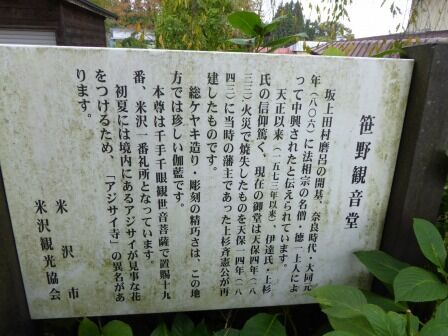 笹野観音堂
坂上田村麿呂の開基、奈良時代・大同元
年(八〇六)に法相宗の名僧・徳一上人によ
って中興されたと伝えられています。
天正以来(一五七三年以来)、伊達氏・上杉
氏の信仰篤く、現在の御堂は天保四年(一八
三三)火災で焼失したものを天保一四年(一八
四三)に当時の藩主であった上杉斉憲公が再
建したものです。
総ケヤキ造り・彫刻の精巧さは、この地
方では珍しい伽藍です。
本尊は千手千眼観世音菩薩で置賜十九
番、米沢一番札所となっています。
初夏には境内にあるアジサイが見事な花
をつけるため、「アジサイ寺」の異名があ
ります。
米沢市
米沢観光協会